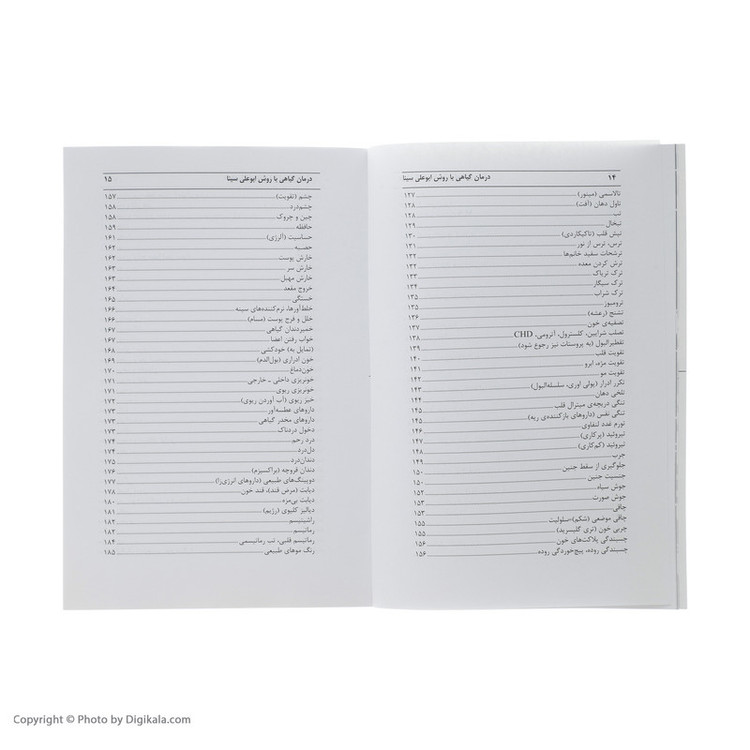 ۱۴ درمان گیاهی با روش ابوعلی سینا
تالاسمی (مینور) ۱۲۷
تاول دهان (آفت) ۱۲۸
تب ۱۲۸
تبخال ۱۲۹
تپش قلب (تاکیکاردی) ۱۳۰
ترس، ترس از نور ۱۳۱
ترشحات سفید خانم‌ها ۱۳۲
ترش کردن معده ۱۳۲
ترک تریاک ۱۳۳
ترک سیگار ۱۳۴
ترک شراب ۱۳۵
ترومبوز ۱۳۵
تشنج (رعشه) ۱۳۶
تصفیه‌ی خون ۱۳۷
تصلب شرایین، کلسترول، آترومی، CHD ۱۳۸
تقطیرالبول (به پروستات نیز رجوع شود) ۱۳۹
تقویت قلب ۱۴۰
تقویت مژه، ابرو ۱۴۱
تقویت مو ۱۴۲
تکرر ادرار (پولی اوری، سلسله‌البول) ۱۴۳
تلخی دهان ۱۴۴
تنگی دریچه‌ی میترال قلب ۱۴۵
تنگی نفس (داروهای بازکننده‌ی ریه) ۱۴۵
تورم غدد لنفاوی ۱۴۶
تیروئید (پرکاری) ۱۴۷
تیروئید (کم‌کاری) ۱۴۸
جرب ۱۴۹
جلوگیری از سقط جنین ۱۵۰
جنسیت جنین ۱۵۰
جوش سیاه ۱۵۲
جوش صورت ۱۵۲
چاقی ۱۵۳
چاقی موضعی (شکم)-سلولیت ۱۵۵
چربی خون (تری گلیسرید) ۱۵۵
چسبندگی پلاکت‌های خون ۱۵۶
چسبندگی روده، پیچ‌خوردگی روده ۱۵۶
درمان گیاهی با روش ابوعلی سینا ۱۵
چشم (تقویت) ۱۵۷
چشم‌درد ۱۵۸
چین و چروک ۱۵۸
حافظه ۱۵۹
حساسیت (آلرژی) ۱۶۱
حصبه ۱۶۲
خارش پوست ۱۶۲
خارش سر ۱۶۳
خارش مهبل ۱۶۳
خروج مقعد ۱۶۴
خستگی ۱۶۵
خلط‌آورها، نرم‌کننده‌های سینه ۱۶۶
خلل و فرج پوست (مسام) ۱۶۶
خمیردندان گیاهی ۱۶۷
خواب رفتن اعضا ۱۶۷
(تمایل به) خودکشی ۱۶۸
خون ادراری (بول‌الدم) ۱۶۹
خون‌دماغ ۱۷۰
خونریزی داخلی ـ خارجی ۱۷۱
خونریزی ریوی ۱۷۱
خیز ریوی (آب آوردن ریوی) ۱۷۲
داروهای عطسه‌آور ۱۷۳
داروهای مخدر گیاهی ۱۷۳
دخول دردناک ۱۷۳
درد رحم ۱۷۴
دل‌درد ۱۷۴
دندان‌درد ۱۷۵
دندان قروچه (براکسیزم) ۱۷۶
دوپینگ‌های طبیعی (داروهای انرژی‌زا) ۱۷۷
دیابت (مرض قند)، قند خون ۱۷۸
دیابت بی‌مزه ۱۸۰
دیالیز کلیوی (رژیم) ۱۸۱
راشیتیسم ۱۸۲
رماتیسم ۱۸۲
رماتیسم قلبی، تب رماتیسمی ۱۸۴
رنگ موهای طبیعی ۱۸۵
Copyright © Photo by Digikala.com